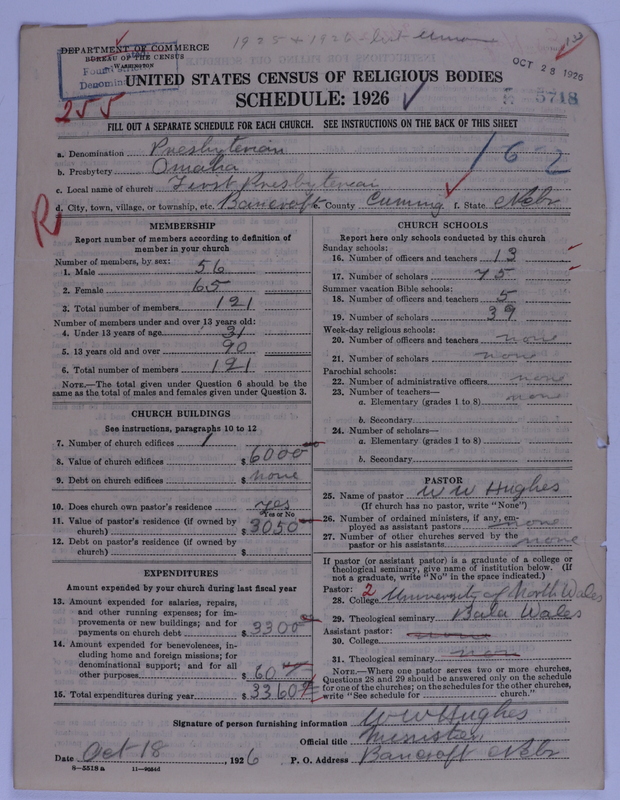 1925 & 1926
133
DEPARTMENT OF COMMERCE
BUREAU OF THE CENSUS
WASHINGTON
OCT 28 1926
UNITED STATES CENSUS OF RELIGIOUS BODIES
SCHEDULE: 1926
5718
255
FILL OUT A SEPARATE SCHEDULE FOR EACH CHURCH. SEE INSTRUCTIONS ON THE BACK OF THIS SHEET
a. Denomination Presbyterian
b. Presbytery Omaha
16-2
c. Local name of church First Presbyterian
d. City, town, village, or township, etc. Bancroft e. County Cuming f. State Nebr
R
MEMBERSHIP
Report number of members according to definition of
member in your church
Number of members, by sex:
1. Male 56
2. Female 65
3. Total number of members 121
Number of members under and over 13 years old:
4. Under 13 years of age 31
5. 13 years old and over 90
6. Total number of members 121
NOTE.—The total given under Question 6 should be the
same as the total of males and females given under Question 3.
CHURCH BUILDINGS
See instructions, paragraphs 10 to 12
7. Number of church edifices 1
8. Value of church edifices $ 6000
9. Debt on church edifices $ none
10. Does church own pastor's residence yes
Yes or No
11. Value of pastor's residence (if owned by
church) $ 3050
12. Debt on pastor's residence (if owned by
church) $
EXPENDITURES
Amount expended by your church during last fiscal year
13. Amount expended for salaries, repairs,
and other running expenses; for im-
provements or new buildings; and for
payments on church debt $ 3300
14. Amount expended for benevolences, in-
cluding home and foreign missions; for
denominational support; and for all
other purposes $ 607
15. Total expenditures during year $ 3360
CHURCH SCHOOLS
Report here only schools conducted by this church
Sunday schools:
16. Number of officers and teachers 13
17. Number of scholars 75
Summer vacation Bible schools:
18. Number of officers and teachers 5
19. Number of scholars 39
Week-day religious schools:
20. Number of officers and teachers none
21. Number of scholars none
Parochial schools:
22. Number of administrative officers none
23. Number of teachers—
a. Elementary (grades 1 to 8) none
b. Secondary
24. Number of scholars—
a. Elementary (grades 1 to 8)
b. Secondary
PASTOR
25. Name of pastor W W Hughes
(If church has no pastor, write "None")
26. Number of ordained ministers, if any, em-
ployed as assistant pastors none
27. Number of other churches served by the
pastor or his assistants none
If pastor (or assistant pastor) is a graduate of a college or
theological seminary, give name of institution below. (If
not a graduate, write "No" in the space indicated.)
Pastor: 2
28. College University of North Wales
29. Theological seminary Bala Wales
Assistant pastor: none
30. College
31. Theological seminary non
NOTE.—Where one pastor serves two or more churches,
Questions 28 and 29 should be answered only on the schedule
for one of the churches; on the schedules for the other churches,
write "See schedule for church."
Signature of person furnishing information W W Hughes
Official title Minister
Date Oct 18, 1926 P. O. Address Bancroft Nebr
8—5518 a 11—9084d